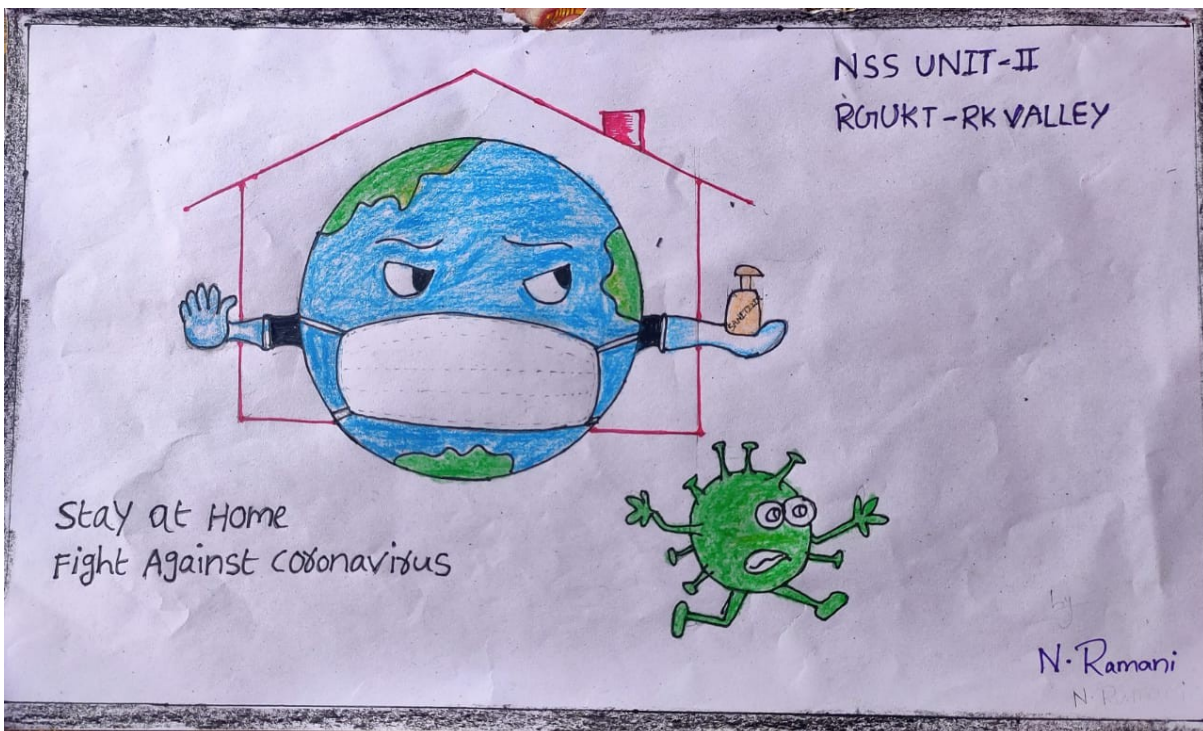 NSS UNIT-II
RGUKT-RK VALLEY
SANITIZER
Stay at Home
Fight Against coronavirus
by
N. Ramani